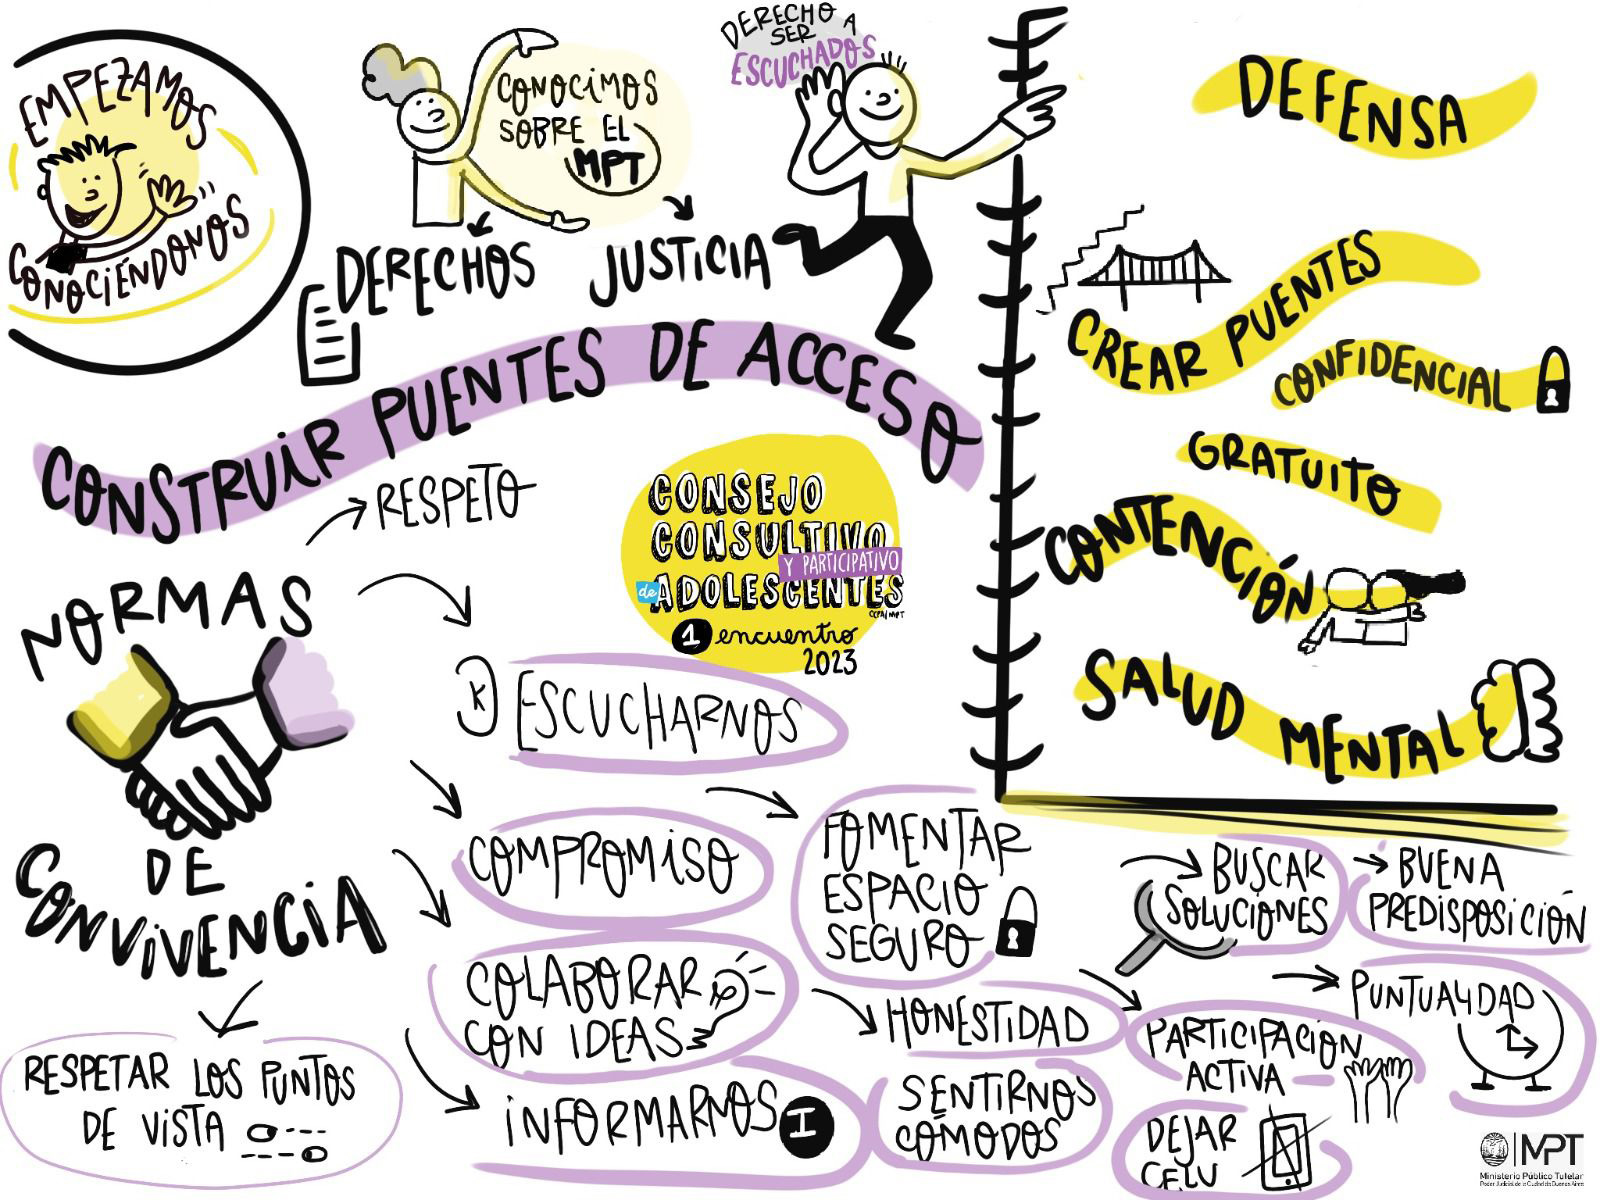 EMPEZAMOS
CONOCIÉNDONOS
CONOCIMOS
SOBRE EL
MPT
DERECHOS
JUSTICIA
DERECHO A
SER
ESCUCHADOS
CONSTRUIR PUENTES DE ACCESO
DEFENSA
CREAR PUENTES
CONFIDENCIAL
GRATUITO
CONTENCIÓN
SALUD MENTAL
CONSEJO
CONSULTIVO
Y PARTICIPATIVO
de ADOLESCENTES
CCPA/MPT
1 encuentro
2023
NORMAS
DE
CONVIVENCIA
RESPETO
ESCUCHARNOS
COMPROMISO
COLABORAR
CON IDEAS
INFORMARNOS
I
RESPETAR LOS PUNTOS
DE VISTA
FOMENTAR
ESPACIO
SEGURO
HONESTIDAD
SENTIRNOS
CÓMODOS
BUSCAR
SOLUCIONES
BUENA
PREDISPOSICIÓN
PARTICIPACIÓN
ACTIVA
PUNTUALIDAD
DEJAR
CELU
MPT
Ministerio Público Tutelar
Poder Judicial de la Ciudad de Buenos Aires